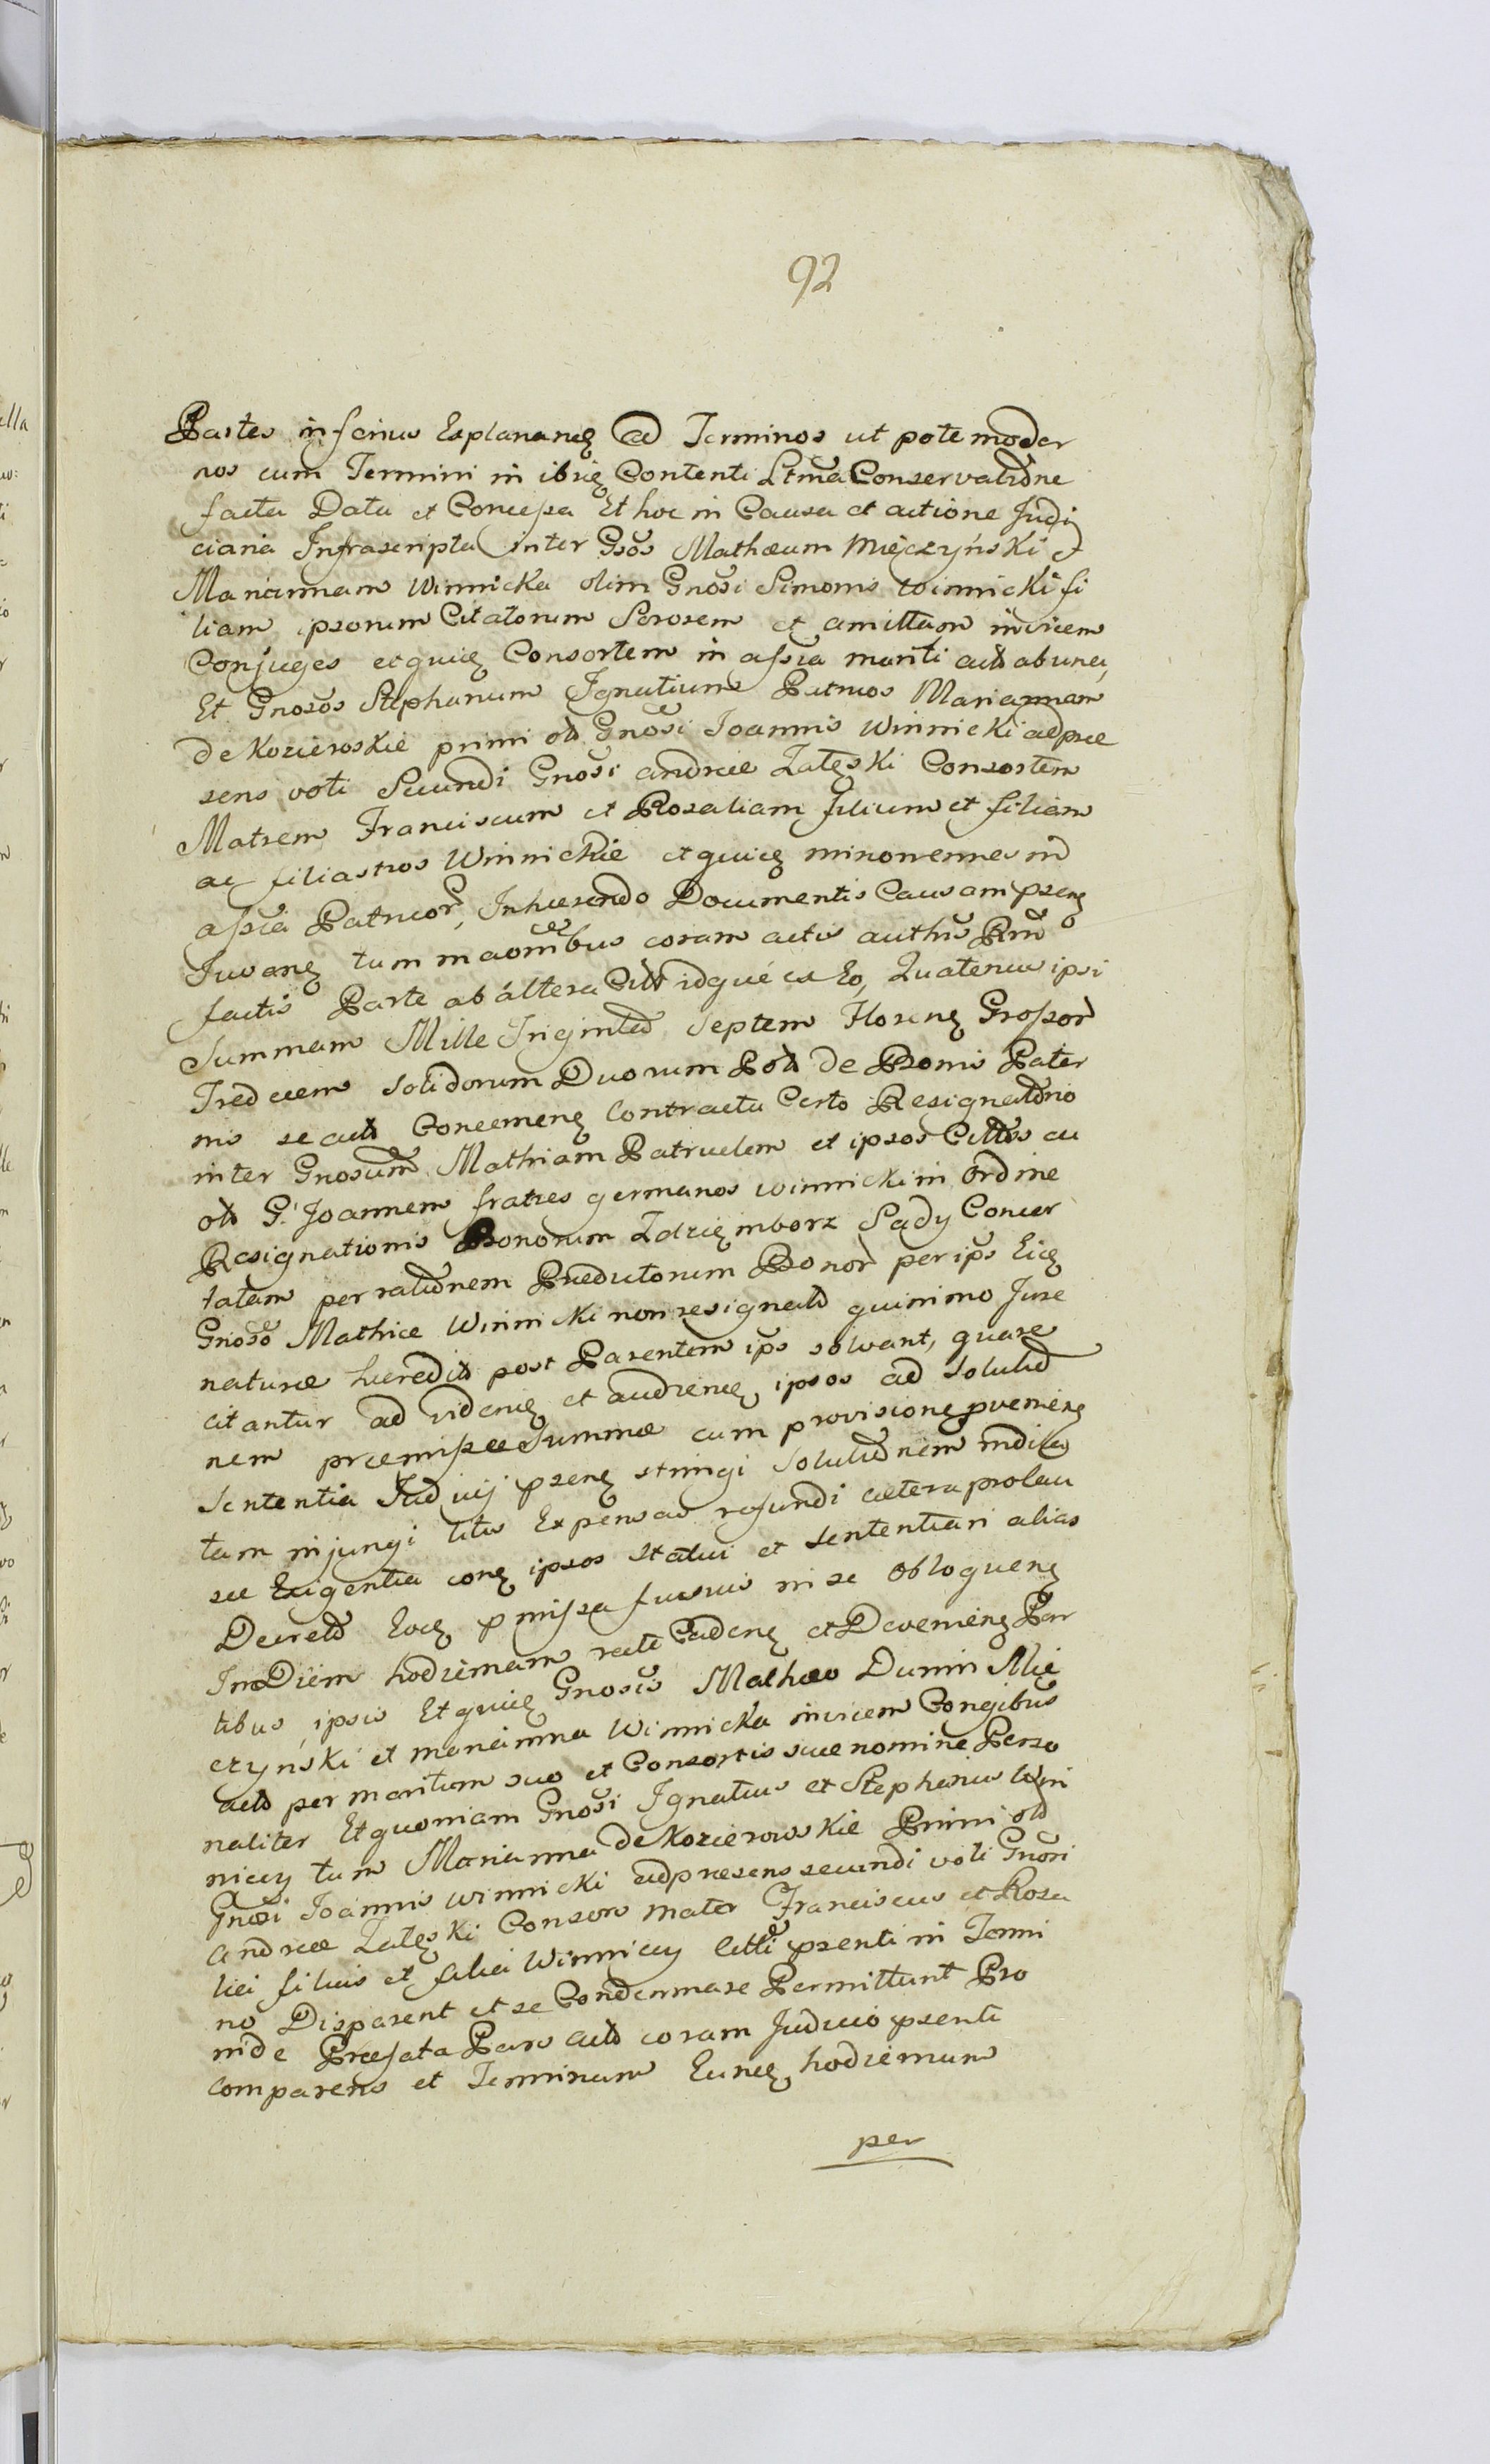 92
Partes inferius Explananę Ad Terminos ut pote moder
nos cum Termini in ibsię Contenti Ltma Conservatiōne
facta Data et Concessa Et hoc in Causa et actione Judi
ciaria Infrascripta inter Gsos Mathæum Mięczyński et
Mariannam Winnicka olim Gnosi Simonis Winnicki fi
liam ipsorum Citatorum Sororem et amittam invicem
Conjuges etquię Consortem in assia mariti actō ab una,
Et Gnosos Stephanum Ignatium Patruos Mariannam
de Kozieroskie primi olō Gnosi Joannis Winnicki ad præ
sens voti Secundi Gnosi andreæ Zalęski Consortem
Matrem Franciscum et Rosaliam filium et filiam
ac filiastros Winnickie etquię minorennes in
assia Patruor, Inhærendo Documentis Causam psenę
Iuvanę tum maombus coram actis authis
factis Parte ab altera Cittō idque ex Eo, Quatenus ipsi
Summam Mille Triginta Septem Florenę Grossor
Tredecem Solidorum Duorum Pol de Bonis Pater
nis se actō Concernenę Contractu Certo Resignatōnio
inter Gnosum Mathiam Patruelem et ipsos Cittos ac
olō G. Joannem fratres germanos winnicki in Ordine
Resignationis Bonorum Zdzięmborz Sady Concer
tatam per ratiōnem Prædictorum Bonor per ips Eię
Gnoso Mathiæ Winnicki non resignatō quinimo Jure
naturæ hæreditō post Parentem ips solvant, quare
citantur ad videnę et audienę ipsos ad Solutiō
nem præmissæ Summæ cum provisione pvenienę
Sententia Judicij psenę stringi Solutiōnem indila
tam injungi litis Expensas refundi cætera pro cau
sæ Exigentia conę ipsos statui et Sententiari alias
Decretō Eoę pmissa fusius in se obloquenę
In Diem hodiernam recte Cadenę et Devenienę Par
tibus ipsis Etquię Gnosis Mathæo Dunin Mię
czyński et marianna Winnicka invicem Congibus
actō per maritum suo et Consortis suæ nomine Perso
naliter Et quoniam Gnosi Ignatius et Stephanus Win
niccy tum Marianna de Kozierowskie Primi olō
Gnosi Joannis winnicki ad præsens secundi voti Gnosi
Andreæ Zalęski Consors mater Franciscus et Rosa
lia filius et filia Winniccy Citti psenti in Termi
no Disparent et se Condemnare Permittunt Pro
inde Præfata Pars actō coram Judicio psenti
comparens et Terminum Eunę hodiernum
per